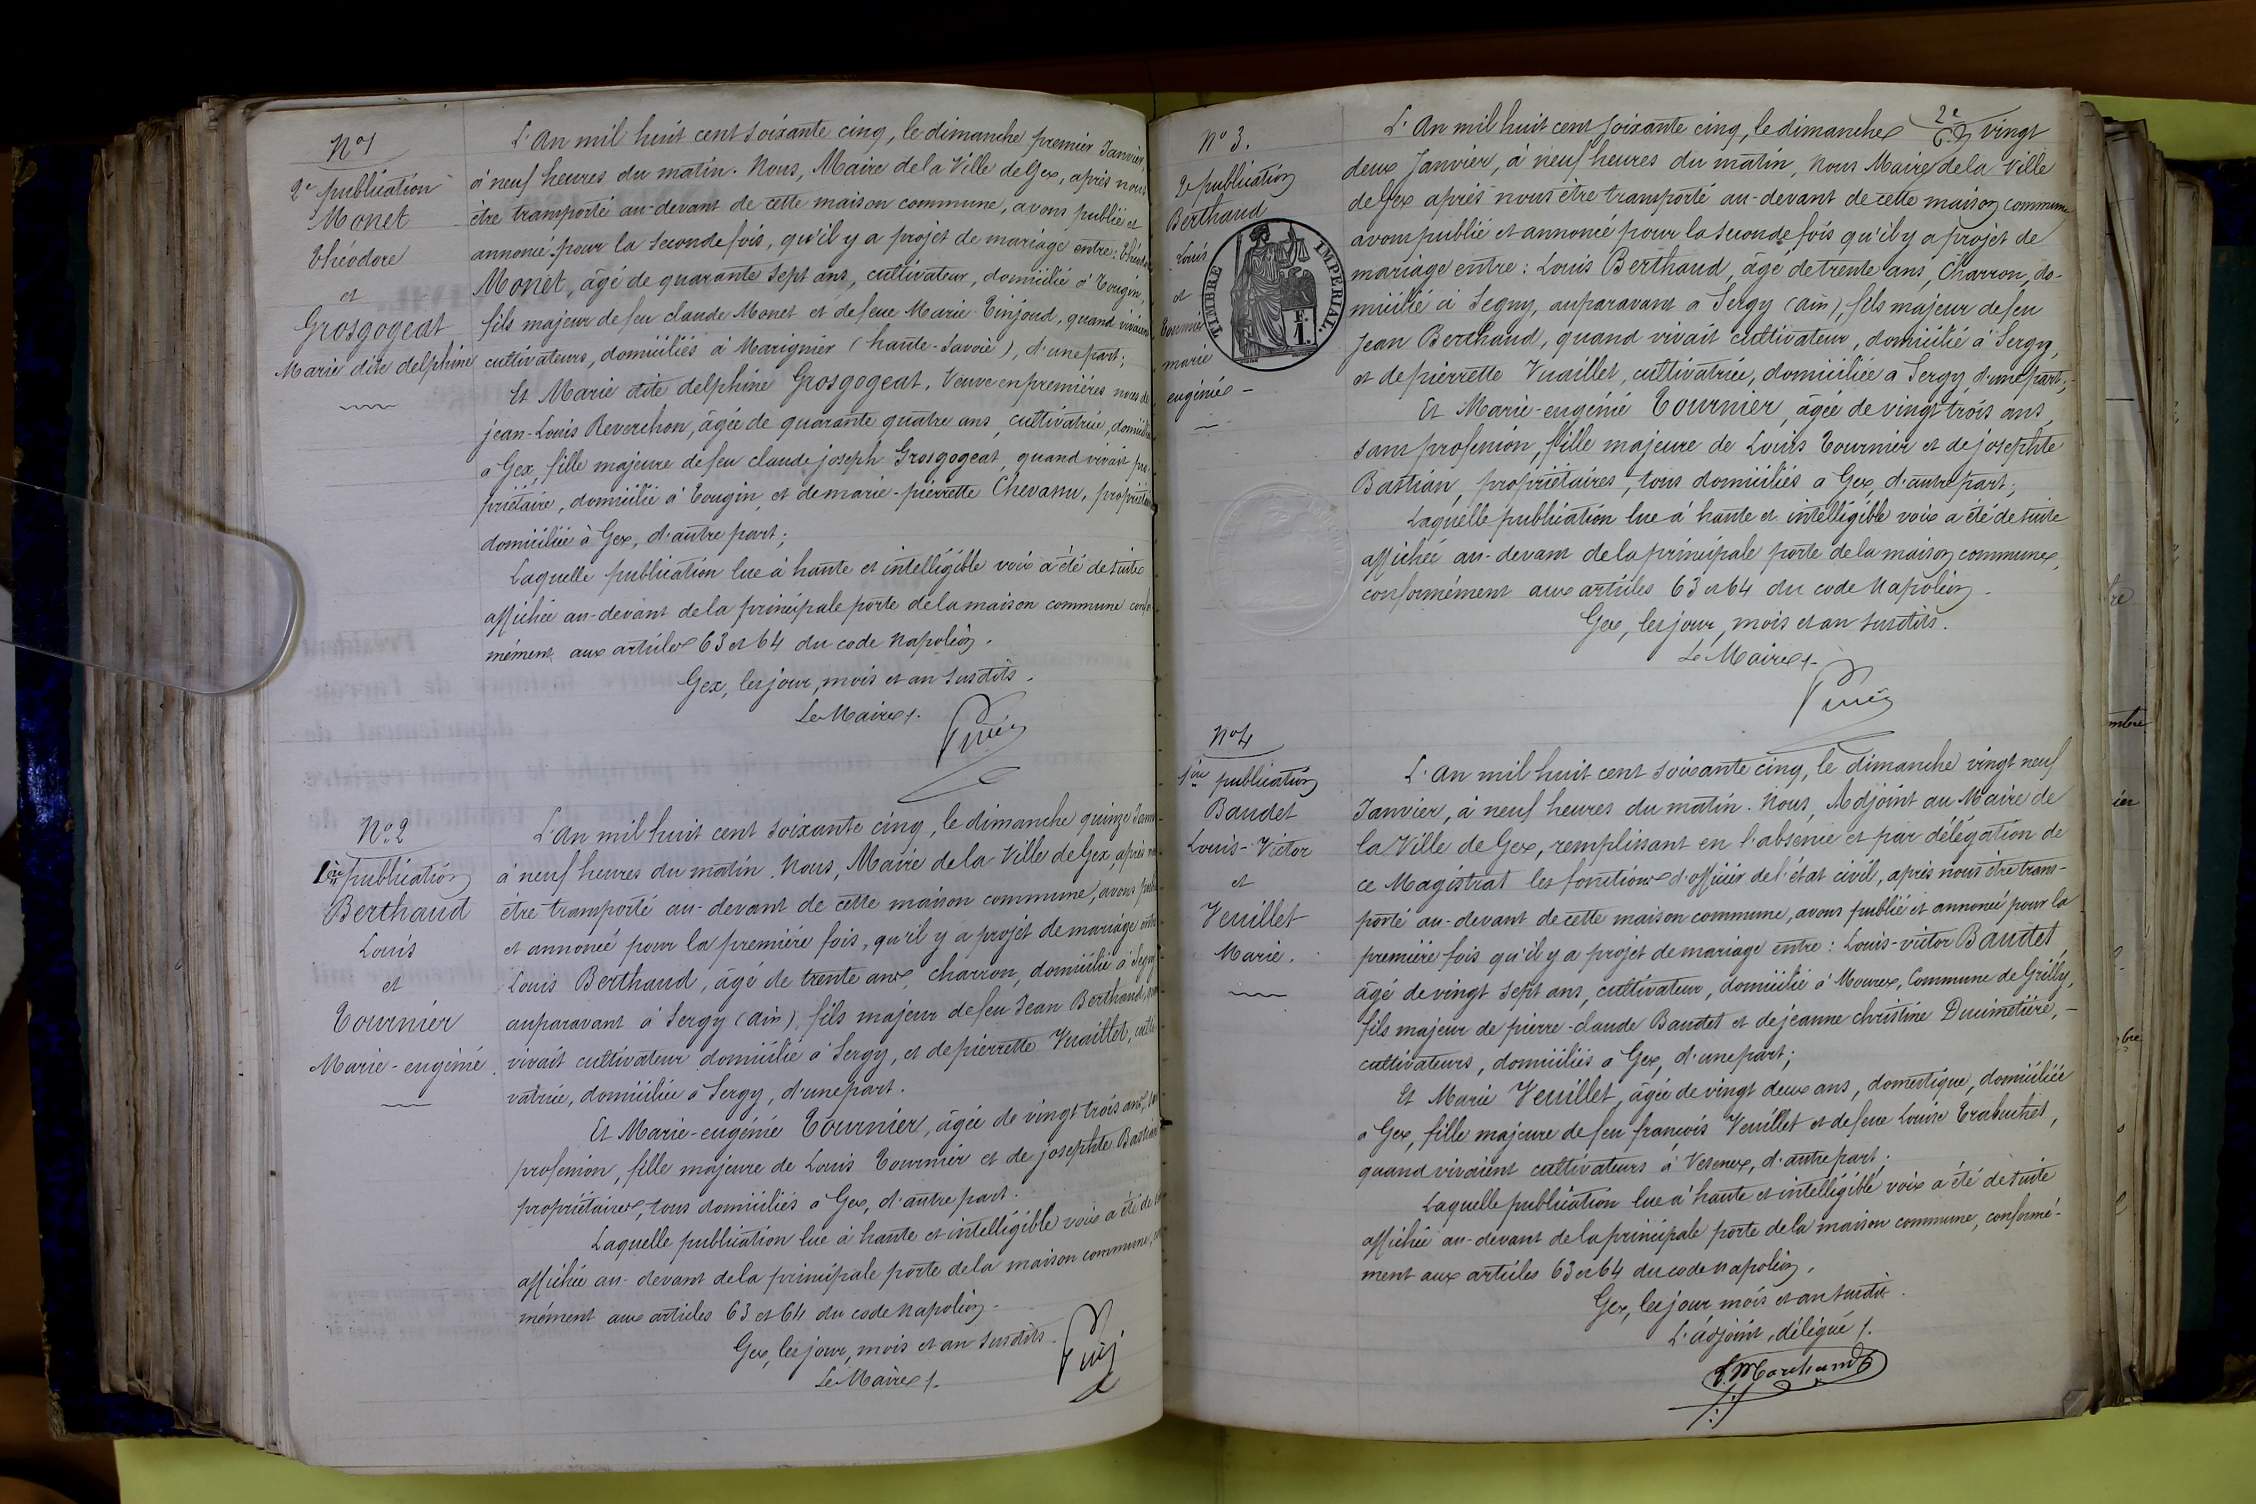 N° 1
2e publication
Monet
théodore
et
Grosgogeat
Marie dite delphine
L'An mil huit cent soixante cinq, le dimanche premier Janvier,
à neuf heures du matin. Nous, Maire de la Ville de Gex, après nous
être transporté au-devant de cette maison commune, avons publié et
annoncé pour la seconde fois, qu'il y a projet de mariage entre: théodore
Monet, âgé de quarante sept ans, cultivateur, domicilié à Tougin,
fils majeur de feu claude Monet et de feue Marie Tinjoud, quand vivaient
cultivateurs, domiciliés à Marignier (haute-Savoie), d'une part;
Et Marie dite delphine Grosgogeat, Veuve en premières noces de
jean-Louis Reverchon, âgée de quarante quatre ans, cultivatrice, domiciliée
a Gex, fille majeure de feu claude joseph Grosgogeat, quand vivait pro-
priétaire, domicilié à Tougin, et de marie-pierrette Chevassu, propriétaire
domiciliée à Gex, d'autre part;
Laquelle publication lue à haute et intelligible voix a été de suite
affichée au-devant de la principale porte de la maison commune confor
mément aux articles 63 et 64 du code Napoléon.
Gex, les jour, mois et an susdits.
Le Maire /.
N° 2
1ère publication
Berthaud
Louis
et
Tournier
Marie-eugénie
L'An mil huit cent soixante cinq, le dimanche quinze Janv
à neuf heures du matin. Nous, Maire de la Ville de Gex, après
être transporté au-devant de cette maison commune, avons
et annoncé pour la première fois, qu'il y a projet de mariage
Louis Berthaud, âgé de trente ans, charron, domicilié à Segny
auparavant à Sergy (ain), fils majeur de feu Jean Berthaud,
vivait cultivateur domicilié à Sergy, et de pierrette Vuaillet, culti
vatrice, domiciliée a Sergy, d'une part.
Et Marie-eugénie Tournier, âgée de vingt trois ans,
profession, fille majeure de Louis Tournier et de josephte Bastian
propriétaires, tous domiciliés a Gex, d'autre part.
Laquelle publication lue à haute et intelligible voix a été de
affichée au-devant de la principale porte de la maison commune,
mément aux articles 63 et 64 du code Napoléon.
Gex, les jour, mois et an susdits.
Le Maire /.
N° 3.
2e publication
Berthaud
Louis
et
Tournier
marie
eugénie
TIMBRE IMPERIAL.
F.
1.
2e
L'An mil huit cent soixante cinq, le dimanche vingt
deux Janvier, à neuf heures du matin, Nous Maire de la Ville
de Gex après nous être transporté au-devant de cette maison commune
avons publié et annoncé pour la seconde fois qu'il y a projet de
mariage entre: Louis Berthaud, âgé de trente ans, Charron, do-
micilié à Segny, auparavant a Sergy (ain), fils majeur de feu
Jean Berthaud, quand vivait cultivateur, domicilié à Sergy,
et de pierrette Vuaillet, cultivatrice, domiciliée a Sergy, d'une part;
Et Marie-eugénie Tournier, âgée de vingt trois ans,
sans profession, fille majeure de Louis Tournier et de josephte
Bastian, propriétaires, tous domiciliés a Gex, d'autre part;
Laquelle publication lue à haute et intelligible voix a été de suite
affichée au-devant de la principale porte de la maison commune,
conformément aux articles 63 et 64 du code Napoléon.
Gex, les jour, mois et an susdits.
Le Maire /.
N° 4
1ère publication
Baudet
Louis-Victor
et
Veuillet
Marie.
L'An mil huit cent soixante cinq, le dimanche vingt neuf
Janvier, à neuf heures du matin. Nous, Adjoint au Maire de
la Ville de Gex, remplissant en l'absence et par délégation de
ce Magistrat les fonctions d'officier de l'état civil, après nous être trans-
porté au-devant de cette maison commune, avons publié et annoncé pour la
première fois qu'il y a projet de mariage entre: Louis-victor Baudet,
âgé de vingt sept ans, cultivateur, domicilié à Mourex, Commune de Grilly,
fils majeur de pierre-claude Baudet et de jeanne christine Ducimetière,
cultivateurs, domiciliés a Gex, d'une part;
Et Marie Veuillet, âgée de vingt deux ans, domestique, domiciliée
a Gex, fille majeure de feu françois Veuillet et de feue Louise Trabuchet,
quand vivaient cultivateurs à Vesenex, d'autre part.
Laquelle publication lue à haute et intelligible voix a été de suite
affichée au-devant de la principale porte de la maison commune, conformé-
ment aux articles 63 et 64 du code Napoléon.
Gex, les jour mois et an susdit.
L'adjoint, délégué /.
Marchand